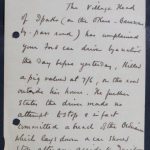 The Village Head
of Spado (on the
by-pass road) has complained
your Ford car driver by
the day before yesterday, killed
a pig valued at 7/6, on the road
outside his house. He further
states the driver made no
attempt to stop & in fact
committed a breach of the Ordinance
which lays down a car should
stop after an accident